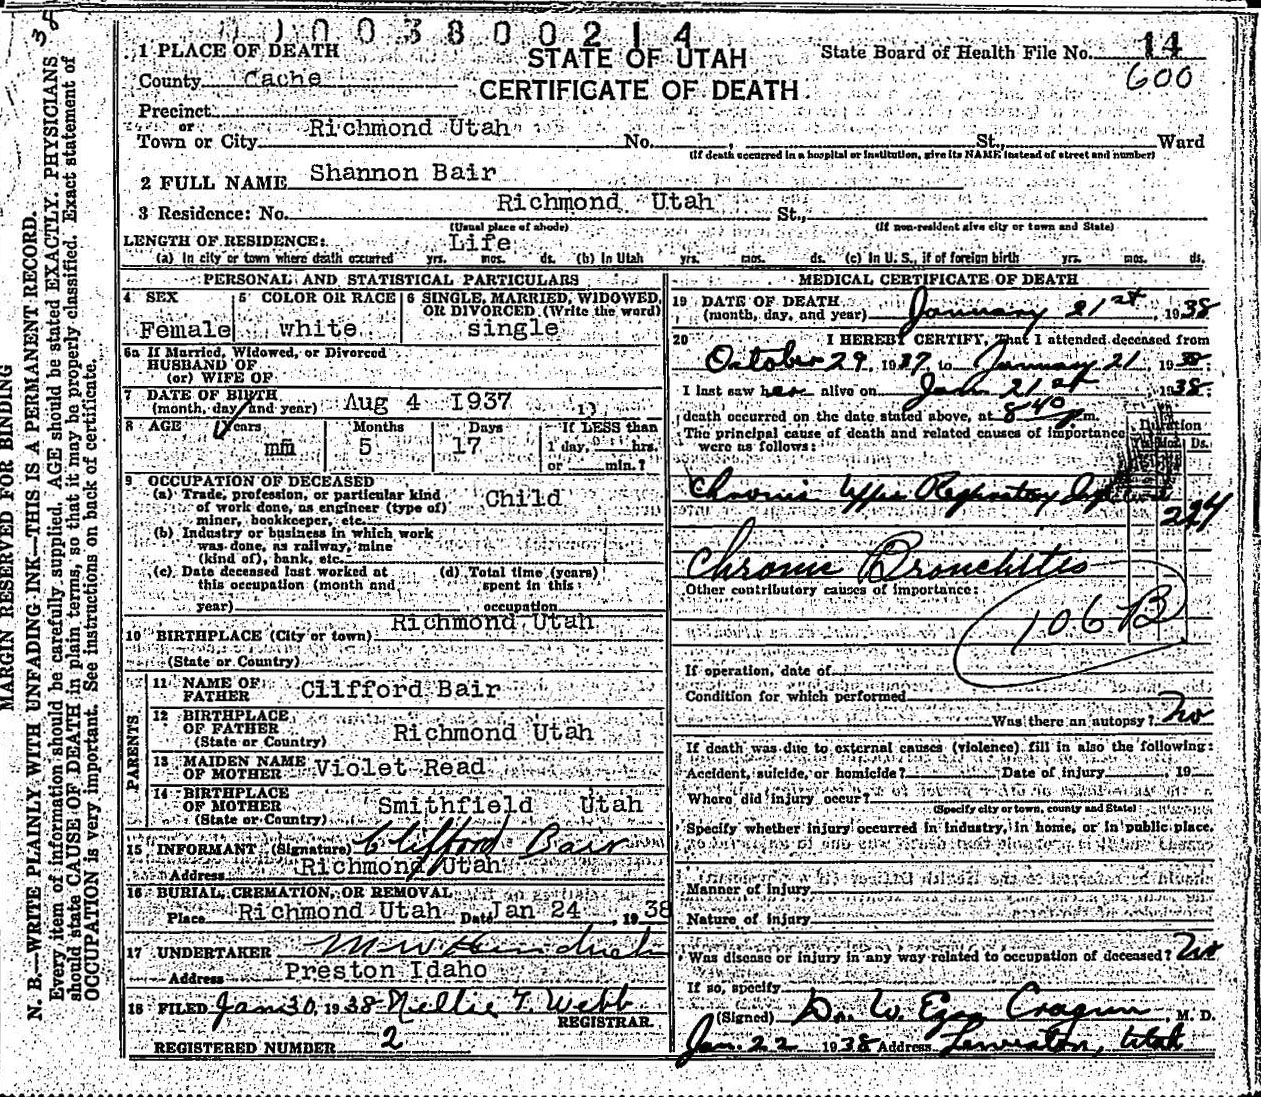 38
003800214
STATE OF UTAH
CERTIFICATE OF DEATH
State Board of Health File No. 14
600
1 PLACE OF DEATH
County Cache
Precinct
or
Town or City Richmond Utah No. , St., Ward
(If death occurred in a hospital or institution, give its NAME instead of street and number)
2 FULL NAME Shannon Bair
3 Residence: No. Richmond Utah St.,
(Usual place of abode) (If non-resident give city or town and State)
LENGTH OF RESIDENCE: Life
(a) In city or town where death occurred yrs. mos. ds. (b) In Utah yrs. mos. ds. (c) In U. S., if of foreign birth yrs. mos. ds.
PERSONAL AND STATISTICAL PARTICULARS
4 SEX Female
5 COLOR OR RACE white
6 SINGLE, MARRIED, WIDOWED,
OR DIVORCED (Write the word)
single
6a If Married, Widowed, or Divorced
HUSBAND OF
(or) WIFE OF
7 DATE OF BIRTH
(month, day, and year) Aug 4 1937
8 AGE Years Months Days If LESS than
mm 5 17 1 day, hrs.
or min.?
9 OCCUPATION OF DECEASED
(a) Trade, profession, or particular kind
of work done, as engineer (type of)
miner, bookkeeper, etc. Child
(b) Industry or business in which work
was done, as railway, mine
(kind of), bank, etc.
(c) Date deceased last worked at
this occupation (month and
year)
(d) Total time (years)
spent in this
occupation
10 BIRTHPLACE (City or town) Richmond Utah
(State or Country)
PARENTS
11 NAME OF
FATHER Clifford Bair
12 BIRTHPLACE
OF FATHER Richmond Utah
(State or Country)
13 MAIDEN NAME
OF MOTHER Violet Read
14 BIRTHPLACE
OF MOTHER Smithfield Utah
(State or Country)
15 INFORMANT (Signature) Clifford Bair
Address Richmond Utah
16 BURIAL, CREMATION, OR REMOVAL
Place Richmond Utah Date Jan 24, 1938
17 UNDERTAKER M W Hendricks
Address Preston Idaho
18 FILED Jan 30, 1938 Nellie T. Webb
REGISTRAR.
REGISTERED NUMBER 2
MEDICAL CERTIFICATE OF DEATH
19 DATE OF DEATH
(month, day, and year) January 21st, 1938
20 I HEREBY CERTIFY, That I attended deceased from
October 29, 1937, to January 21, 1938;
I last saw her alive on Jan. 21st, 1938;
death occurred on the date stated above, at 8 40 p m.
The principal cause of death and related causes of importance
were as follows:
Duration
Yrs. Mos. Ds.
Chronic Upper Respiratory
Chronic Bronchitis
Other contributory causes of importance:
106 B
If operation, date of
Condition for which performed
Was there an autopsy? No
If death was due to external causes (violence) fill in also the following:
Accident, suicide, or homicide? Date of injury , 19
Where did injury occur?
(Specify city or town, county and State)
Specify whether injury occurred in industry, in home, or in public place.
Manner of injury
Nature of injury
Was disease or injury in any way related to occupation of deceased? No
If so, specify
(Signed) Dr. W. Ezra Cragun, M. D.
Jan. 22 1938 Address Lewiston, Utah
MARGIN RESERVED FOR BINDING
N. B.—WRITE PLAINLY WITH UNFADING INK—THIS IS A PERMANENT RECORD.
Every item of information should be carefully supplied. AGE should be stated EXACTLY. PHYSICIANS
should state CAUSE OF DEATH in plain terms, so that it may be properly classified. Exact statement of
OCCUPATION is very important. See instructions on back of certificate.